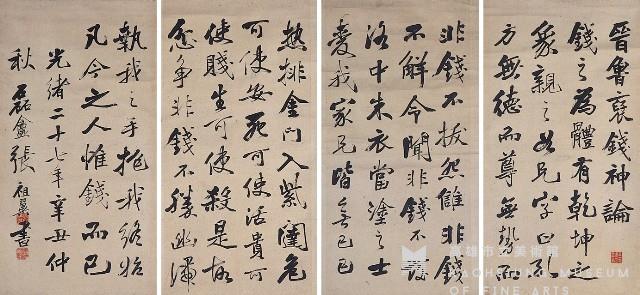 晉魯褒錢神論
錢之為體有乾坤之
象親之如兄字曰孔
方無德而尊無勢而
非錢不拔怨讎非錢
不解令聞非錢不發
洛中朱衣當塗之士
愛我家兄皆無已已
熱排金門入紫闥危
可使安死可使活貴可
使賤生可使殺是故
忿爭非錢不勝幽滯
執我之手抱我終始
凡今之人惟錢而已
光緒二十七年辛丑仲
秋 磊盦張祖翼書
高雄市立美術館
KAOHSIUNG MUSEUM
OF FINE ARTS